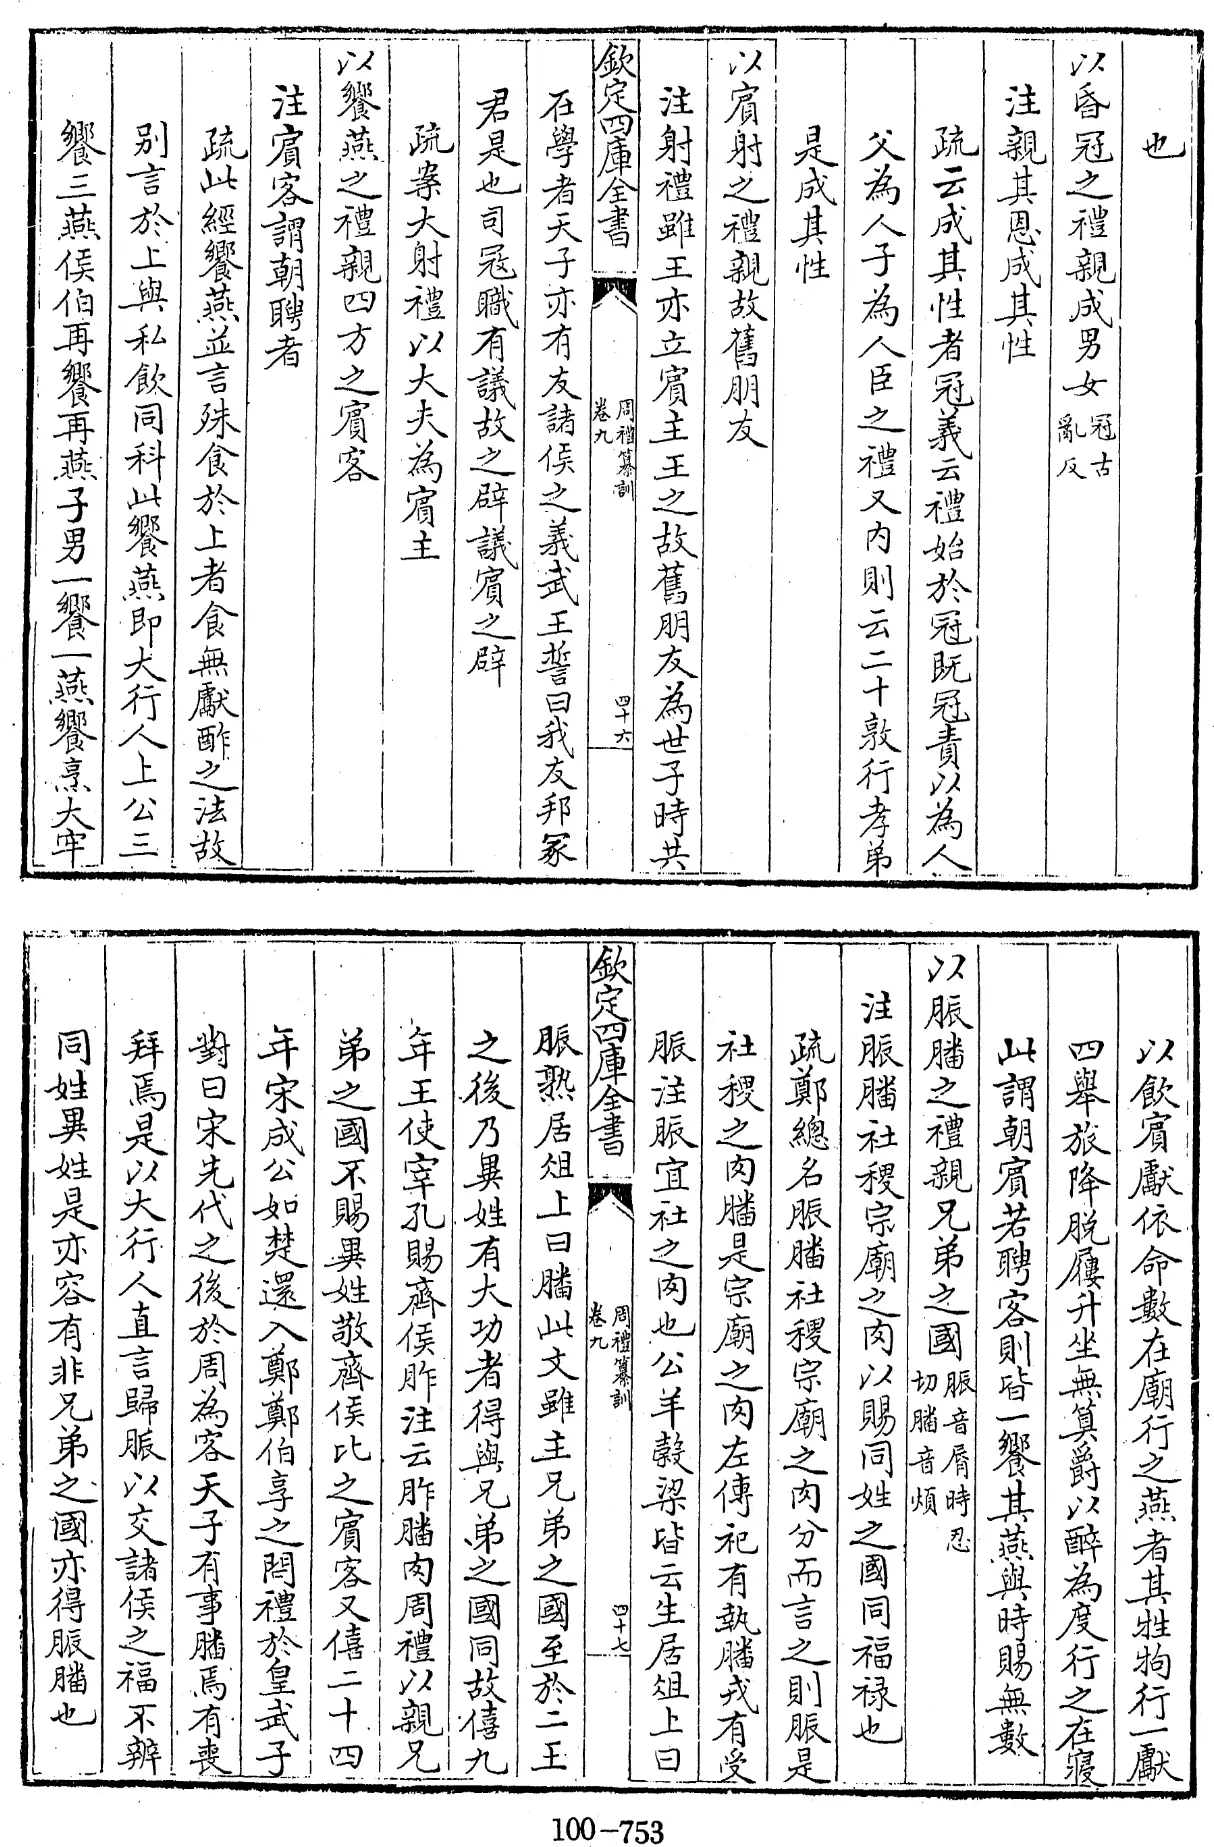 也
以昏冠之禮親成男女冠古亂反
注親其恩成其性
疏云成其性者冠義云禮始於冠既冠責以為人
父為人子為人臣之禮又内則云二十敦行孝弟
是成其性
以賔射之禮親故舊朋友
注射禮雖王亦立賔主王之故舊朋友為世子時共
欽定四庫全書
周禮纂訓
卷九
四十六
在學者天子亦有友諸侯之義武王誓曰我友邦冢
君是也司冦職有議故之辟議賔之辟
疏案大射禮以大夫為賔主
以饗燕之禮親四方之賔客
注賔客謂朝聘者
疏此經饗燕並言殊食於上者食無獻酢之法故
别言於上與私飲同科此饗燕即大行人上公三
饗三燕侯伯再饗再燕子男一饗一燕饗烹大牢
以飲賔獻依命數在廟行之燕者其牲狗行一獻
四舉旅降脱屨升坐無算爵以醉為度行之在寝
此謂朝賔若聘客則皆一饗其燕與時賜無數
以脤膰之禮親兄弟之國脤音脣時忍切膰音煩
注脤膰社稷宗廟之肉以賜同姓之國同福禄也
疏鄭總名脤膰社稷宗廟之肉分而言之則脤是
社稷之肉膰是宗廟之肉左傳祀有執膰戎有受
脤注脤宜社之肉也公羊榖梁皆云生居俎上曰
欽定四庫全書
周禮纂訓
卷九
四十七
脤熟居俎上曰膰此文雖主兄弟之國至於二王
之後乃異姓有大功者得與兄弟之國同故僖九
年王使宰孔賜齊侯胙注云胙膰肉周禮以親兄
弟之國不賜異姓敬齊侯比之賔客又僖二十四
年宋成公如楚還入鄭鄭伯享之問禮於皇武子
對曰宋先代之後於周為客天子有事膰焉有喪
拜焉是以大行人直言歸脤以交諸侯之福不辨
同姓異姓是亦容有非兄弟之國亦得脤膰也
100-753